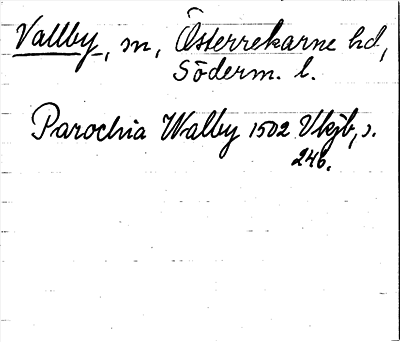 Vallby, sn, Österrekarne hd,
Söderm. l.
Parochia Walby 1502 Vkjb, s.
246.